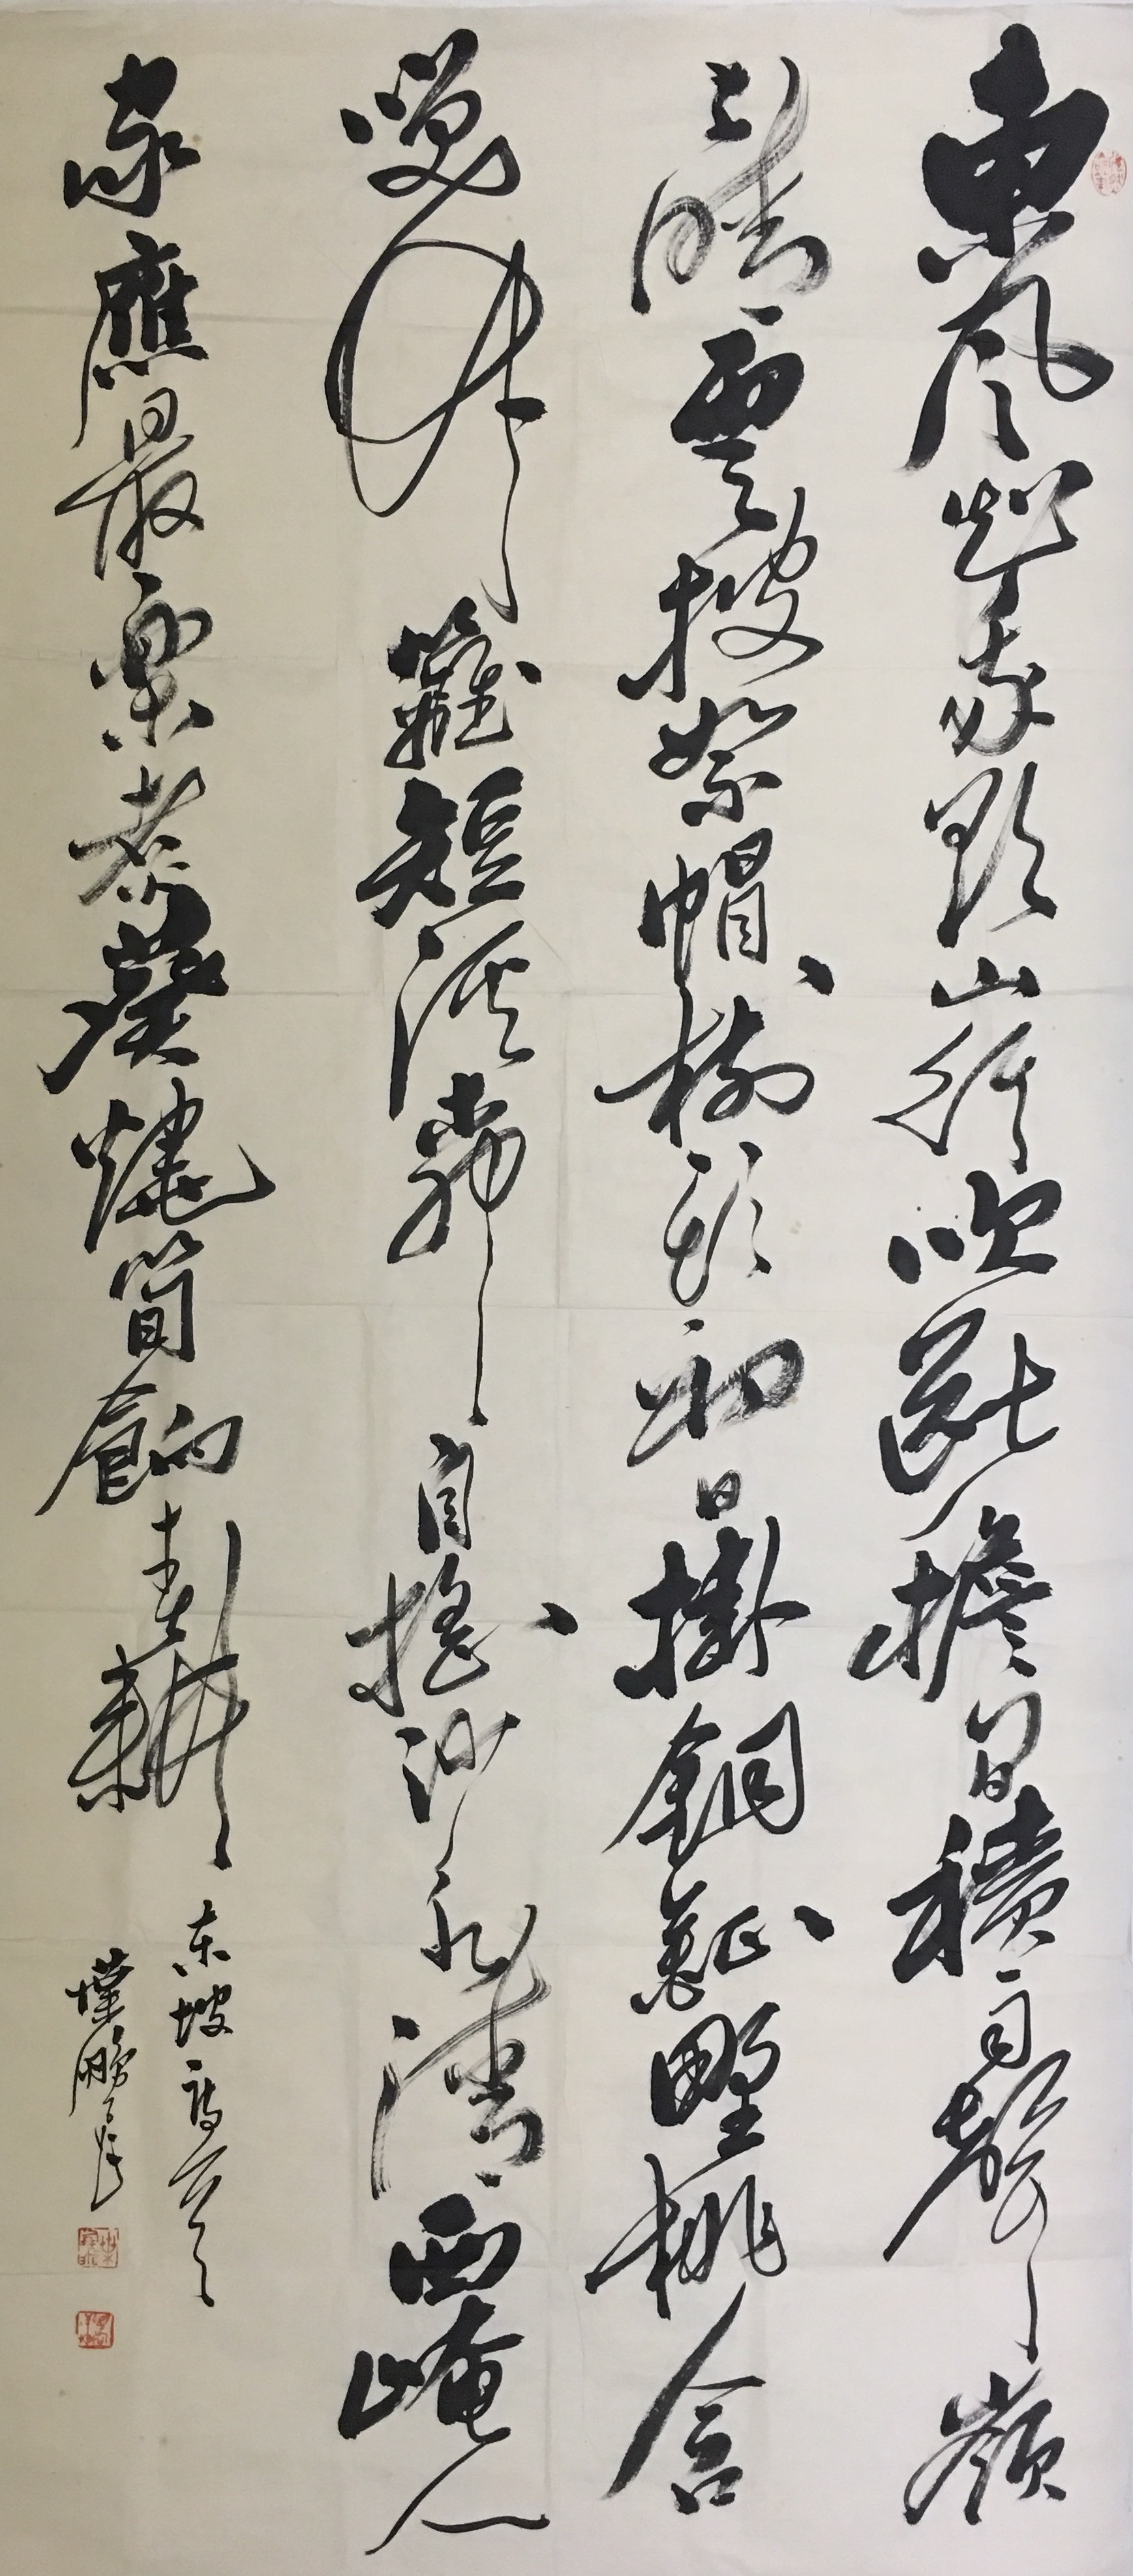 東風知我欲山行吹斷檐間積雨聲嶺
上晴雲披絮帽樹頭初日掛銅鉦野桃含
笑竹籬短溪柳自搖沙水清西崦人
家應最樂煮葵燒筍餉春耕
东坡詩